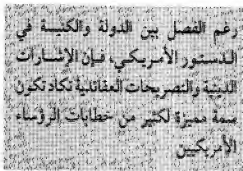 رغم الفصل بين الدولة والكنيسة في
الدستور الأمريكي، فإن الإشارات
الدينية والتصريحات العقائدية تكاد تكون
سمة مميزة لكثير من خطابات الرؤساء
الأمريكيين